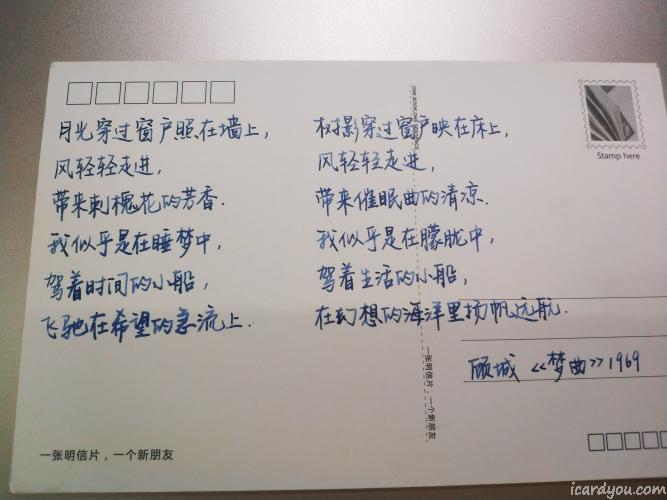 月光穿过窗户照在墙上，
风轻轻走进，
带来刺槐花的芳香．
我似乎是在睡梦中，
驾着时间的小船，
飞驰在希望的急流上．
树影穿过窗户映在床上，
风轻轻走进，
带来催眠曲的清凉．
我似乎是在朦胧中，
驾着生活的小船，
在幻想的海洋里扬帆远航．
顾城 《梦曲》1969
Stamp here
一张明信片，一个新朋友
一张明信片，一个新朋友
icardyou.com